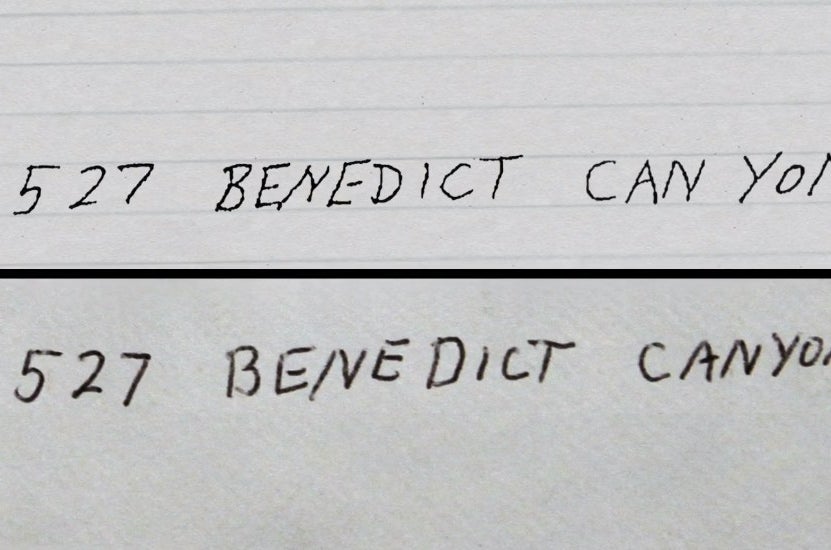 527 BENEDICT CAN YON
527 BENEDICT CANYON